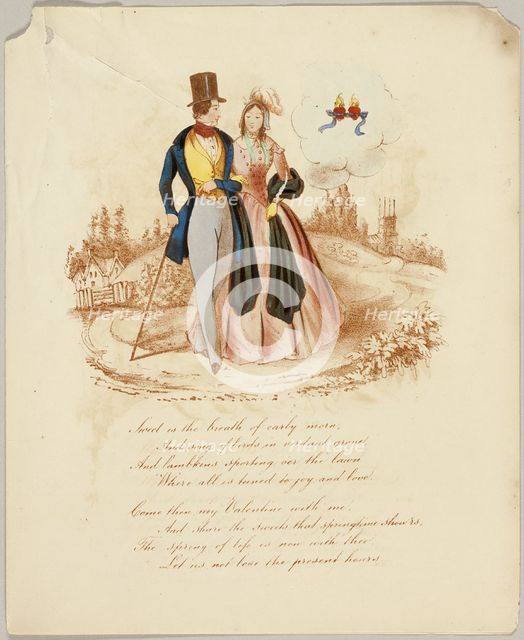 Sweet is the breath of early morn,
And song of birds in verdant grove,
And lambkins sporting o'er the lawn
Where all is tuned to joy and love.
Come then my Valentine with me,
And share the sweets that springtime show'rs,
The spring of life is now with thee,
Let us not lose the present hours.
Heritage
Heritage
Heritage
Heritage
Heritage
Heritage
Heritage